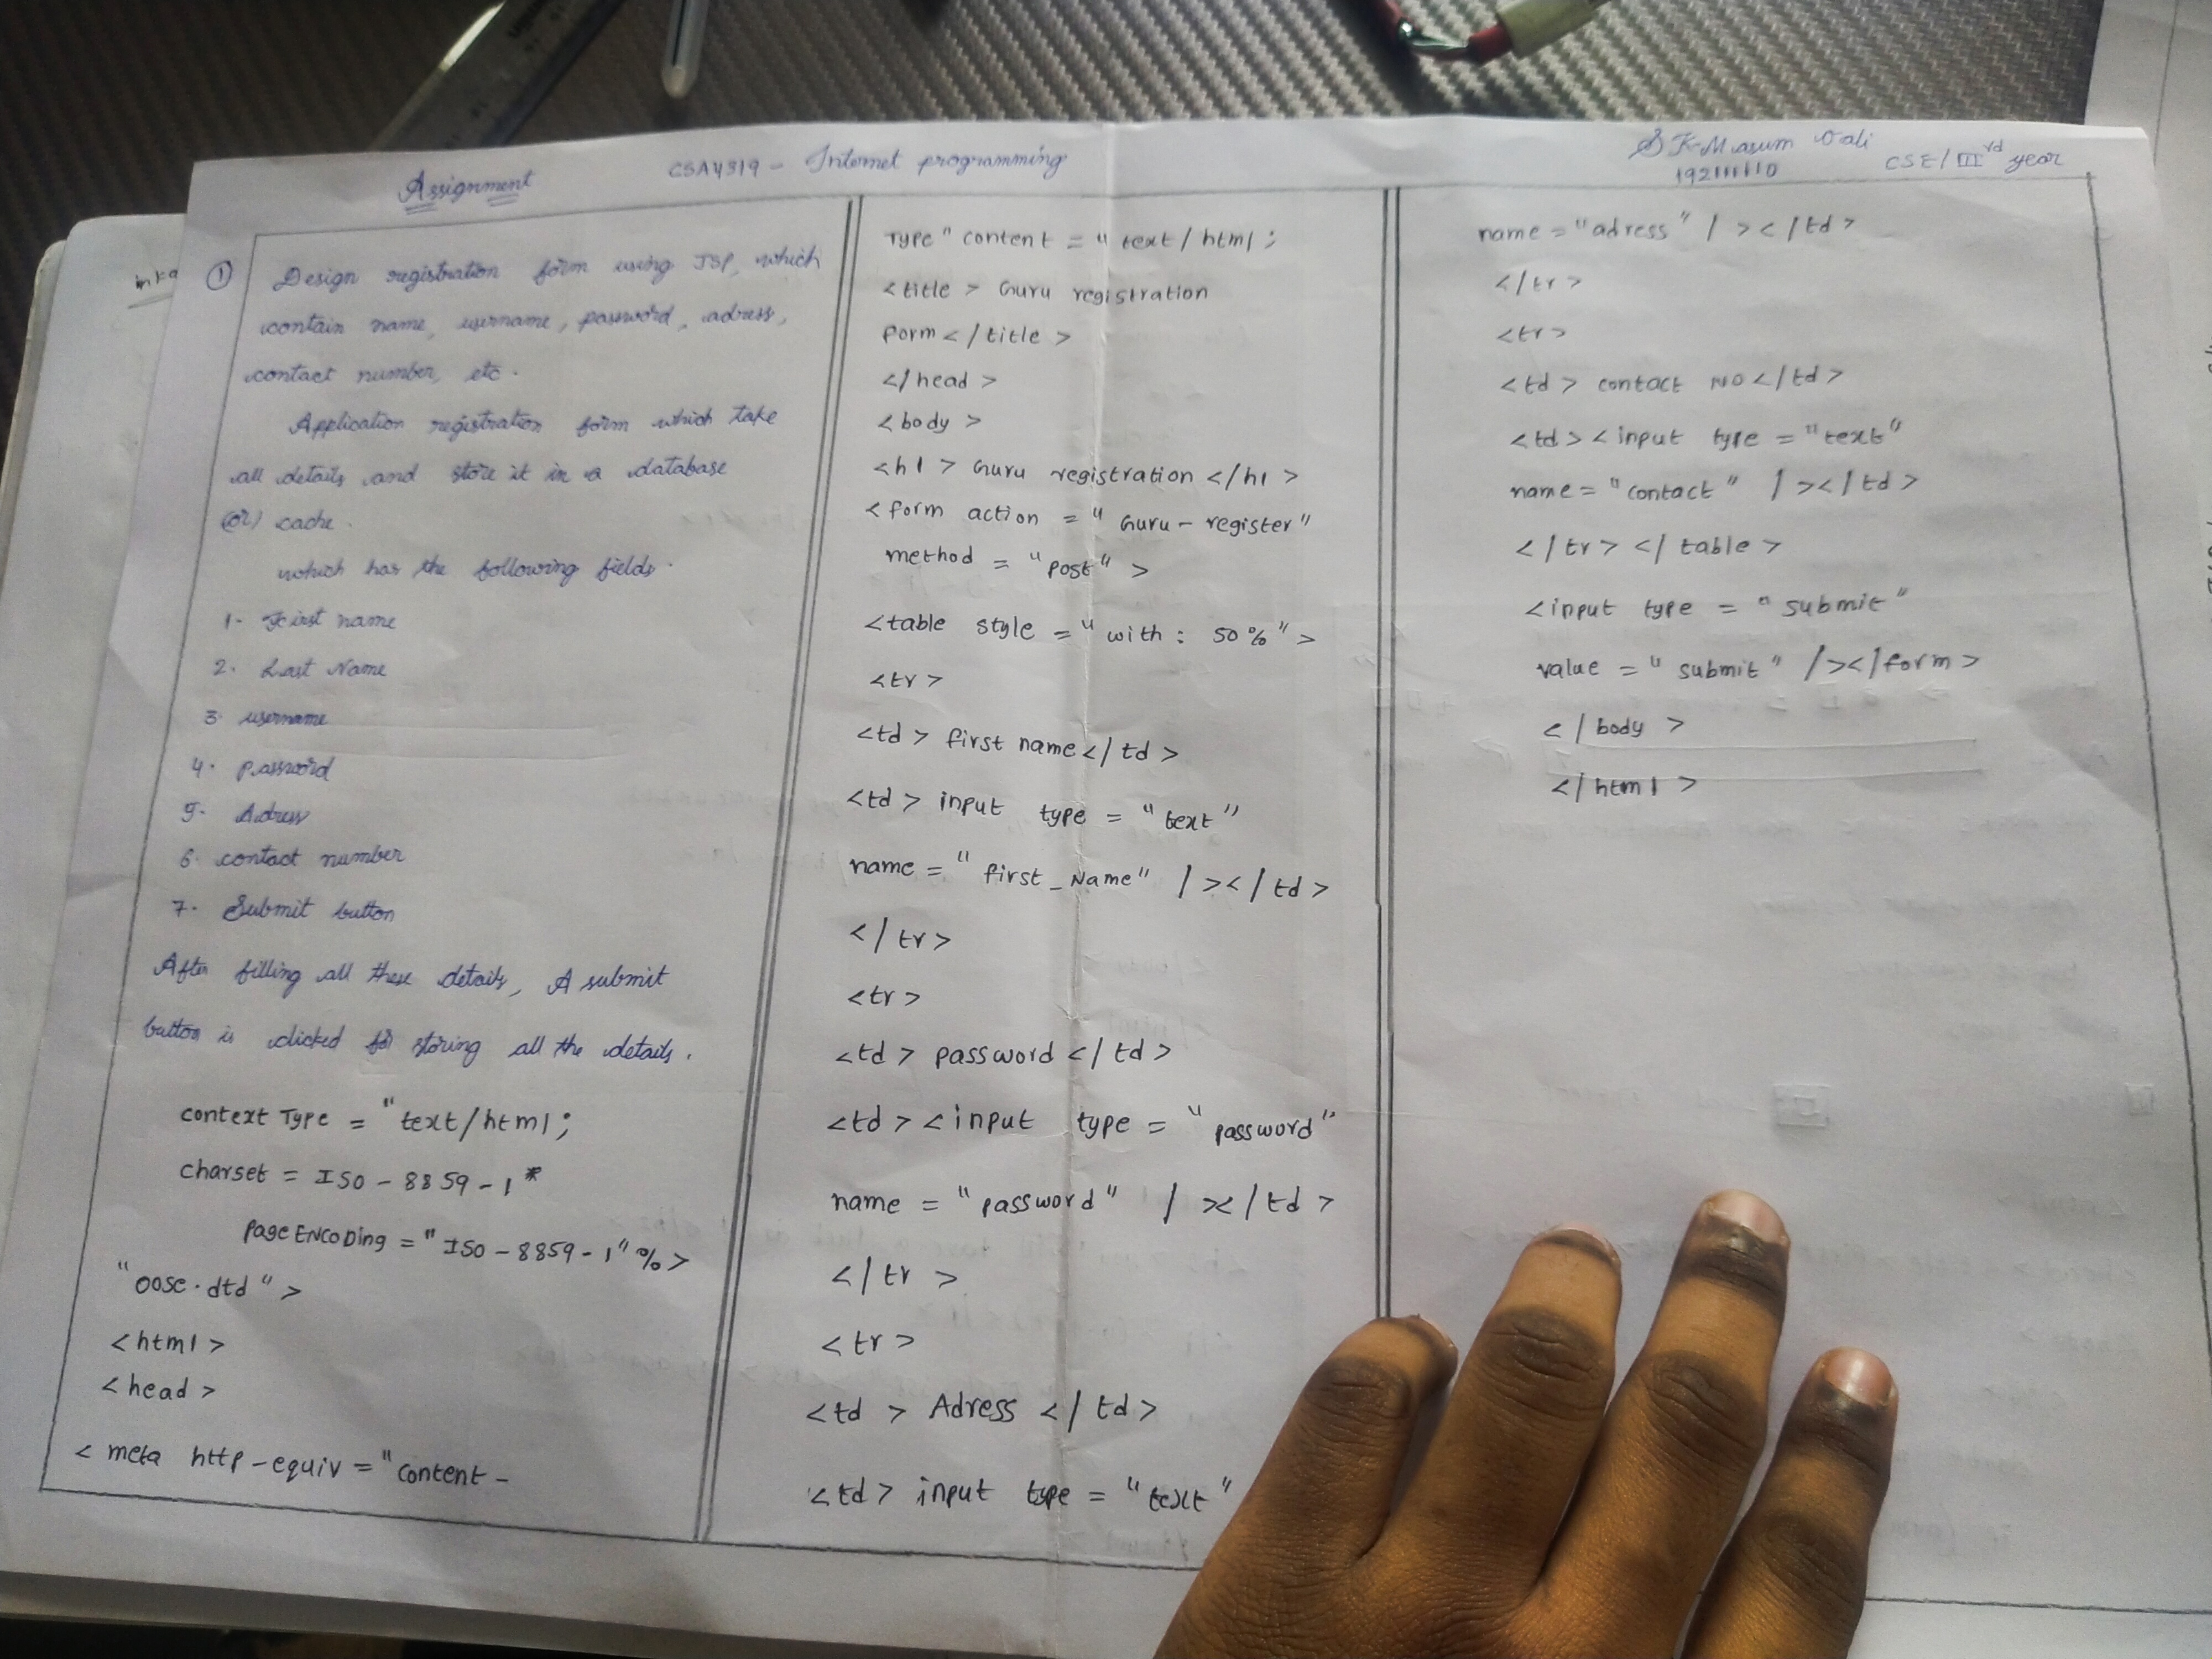 Assignment
CSA4319 - Internet programming
SK-Masum Vali
192111110
CSE/IIIrd year
① Design registration form using JSP, which
contain name, username, password, adress,
contact number, etc.
Application registration form which take
all details and store it in a database
(or) cache.
which has the following fields.
1. First name
2. Last Name
3. username
4. password
5. Adress
6. contact number
7. Submit button
After filling all these details, A submit
button is clicked for storing all the details.
context Type = "text/html;
charset = ISO-8859-1"
page ENCoDing = "ISO-8859-1"%>
"oose.dtd">
<html>
<head>
<meta http-equiv="content-
Type" content = "text/html;
<title> Guru registration
Form</title>
</head>
<body>
<h1> Guru registration </h1>
<form action = "Guru-register"
method = "post">
<table style = "with: 50%">
<tr>
<td> first name</td>
<td> input type = "text"
name = "first_Name" /></td>
</tr>
<tr>
<td> password </td>
<td><input type = "password"
name = "password" /></td>
</tr>
<tr>
<td> Adress </td>
<td> input type = "text"
name = "adress" /></td>
</tr>
<tr>
<td> contact NO</td>
<td><input type = "text"
name = "contact" /></td>
</tr></table>
<input type = "submit"
value = "submit" /></form>
</body>
</html>